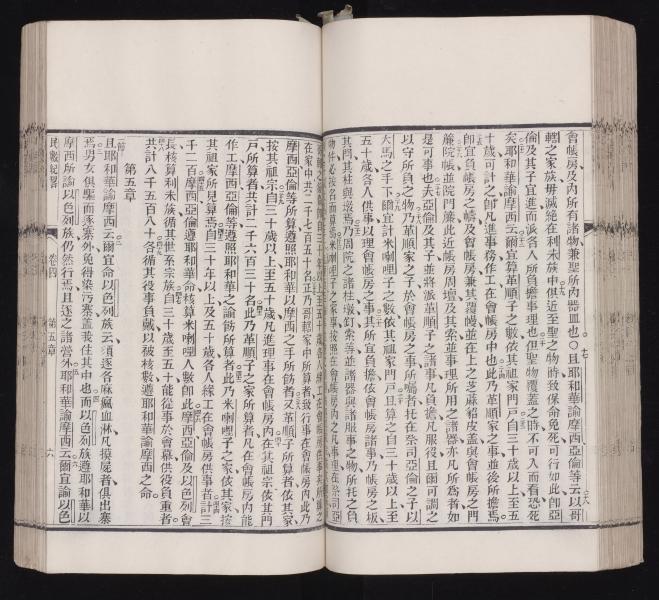 會帳房及內所有諸物兼聖所內器皿也○且耶和華諭摩西亞倫等云以哥
轄之家族毋滅絕在利未族中俱近至聖之物時致保命免死可行如此卽亞
倫及其子宜進而派各人所負擔事理也但聖物覆蓋之時不可入而看恐死
矣耶和華諭摩西云爾宜算革順子之數依其祖家門戶自三十歲以上至五
十歲可計之卽凡進事務作工在會帳房中也此乃革順家之事並後所擔焉
卽宜負會帳房之幔及會帳房兼其覆幔並在上之芝蔴貂皮蓋與會帳房之門
簾院帳並院門簾此近帳房周壇及其索並事理所用之諸器亦凡所爲者如
是可事也夫亞倫及其子並將派革順子之諸事凡負擔凡服役且爾可調之
以守所負之物乃革順家之子於會帳房之事所囑者托在祭司亞倫之子以
大馬之手下爾宜計米唎哩子之數依其祖家門戶且算之自三十歲以上至
五十歲各人供事以理會帳房之事其所宜負擔依會帳房諸事乃帳房之板
其閂其柱與墩焉周院之諸柱墩釘索等並諸器與諸服事之物所托之負
物件必按名而
在家中共二千七百五十名正乃哥轄家中所算者致行事在會帳房內此乃
摩西亞倫等所算遵照耶和華以摩西之手所飭者又革順子所算者依其家
按其祖宗自三十歲以上至五十歲凡進理事在會帳房內在其祖宗依其門
戶所算者共計二千六百三十名此乃革順子之家所算者凡在會帳房內能
作工摩西亞倫等遵照耶和華之諭飭所算者此乃米唎哩子之家依其家按
其祖家所見算焉自三十年以上及五十歲各人緣工在會帳房供事者計三
千二百摩西亞倫遵耶和華命核算米唎哩人數卽此摩西亞倫及以色列會
長核算利未族循其世系宗族自三十歲至五十能從事於會幕供役負重者
共計八千五百八十各循其役事負戴以被核數遵耶和華諭摩西之命
第五章
且耶和華諭摩西云爾宜命以色列族云須逐各麻瘋血淋凡摸屍者俱出寨
焉男女俱驅而逐寨外免得染污寨蓋我住其中也而以色列族遵耶和華以
摩西所諭以色列族仍然行焉且逐之諸營外耶和華諭摩西云爾宜諭以色
民數紀畧
卷四
第五章
六